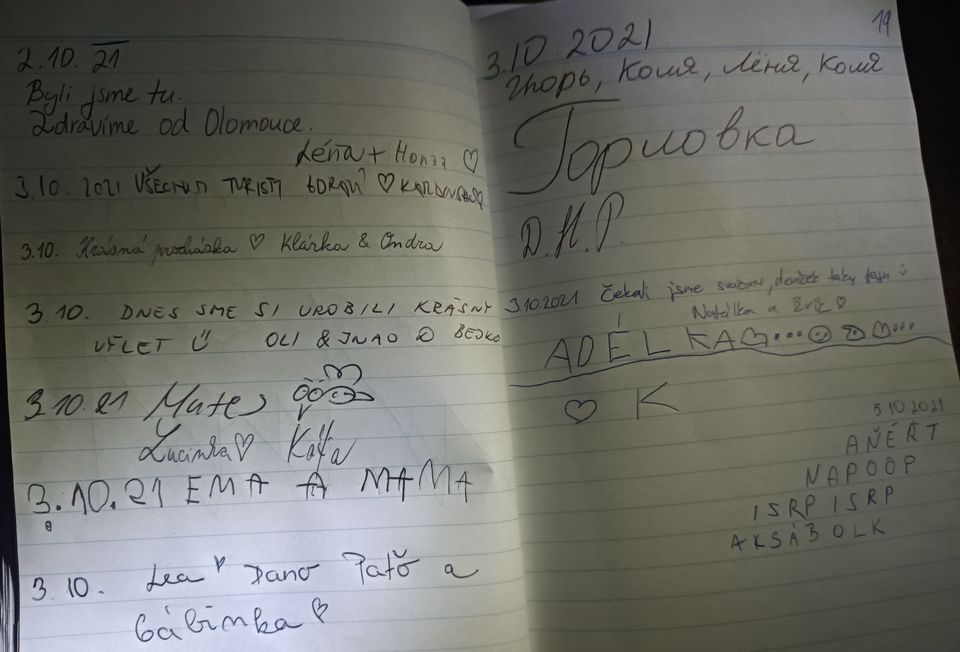 2.10. 21
Byli jsme tu.
Zdravíme od Olomouce.
Léňa + Honza ♡
3.10. 2021 VŠECHNY TURISTY ♡
3.10. Krásná procházka ♡ Klárka & Ondra
3.10. DNES SME SI UROBILI KRÁSNY
VÝLET OLI & BEJKO
3.10.21 Mates
Lucinka ♡ Kaťa
3.10.21 EMA A MAMA
3.10. Lea ♡ Dano Paťo a
Gábinka ♡
19
3.10.2021
Игорь, Коля, Лёня, Коля
Горловка
Д.Н.Р.
3.10.2021 Čekali jsme deníček taky fajn
Natálka a ♡
ADÉLKA
♡ K
5.10.2021
AŇÉŘT
NAPOOP
ISRP ISRP
AKSÁBOLK